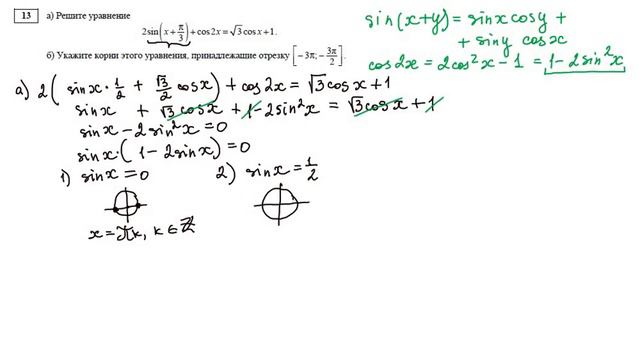 13 а) Решите уравнение
2sin(x + π/3) + cos2x = √3cosx + 1.
б) Укажите корни этого уравнения, принадлежащие отрезку [-3π; -3π/2].
sin(x+y) = sinx cosy +
+ siny cosx
cos2x = 2cos²x - 1 = 1 - 2sin²x
а) 2(sinx · 1/2 + √3/2 cosx) + cos2x = √3cosx + 1
sinx + √3cosx + 1 - 2sin²x = √3cosx + 1
sinx - 2sin²x = 0
sinx · (1 - 2sinx) = 0
1) sinx = 0 2) sinx = 1/2
x = πk, k ∈ ℤ